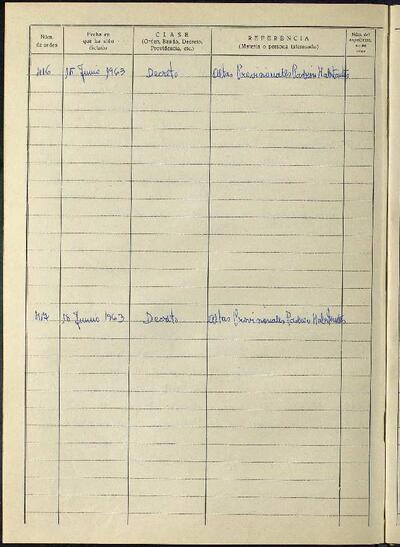 Núm. de orden
Fecha en que ha sido dictado
CLASE
(Orden, Bando, Decreto, Providencia, etc.)
REFERENCIA
(Materia o persona interesada)
Núm. del expediente,
416 15 Junio 1963 Decreto Altas Provisionales Padrón Habitantes
417 15 Junio 1963 Decreto Altas Provisionales Padrón Habitantes